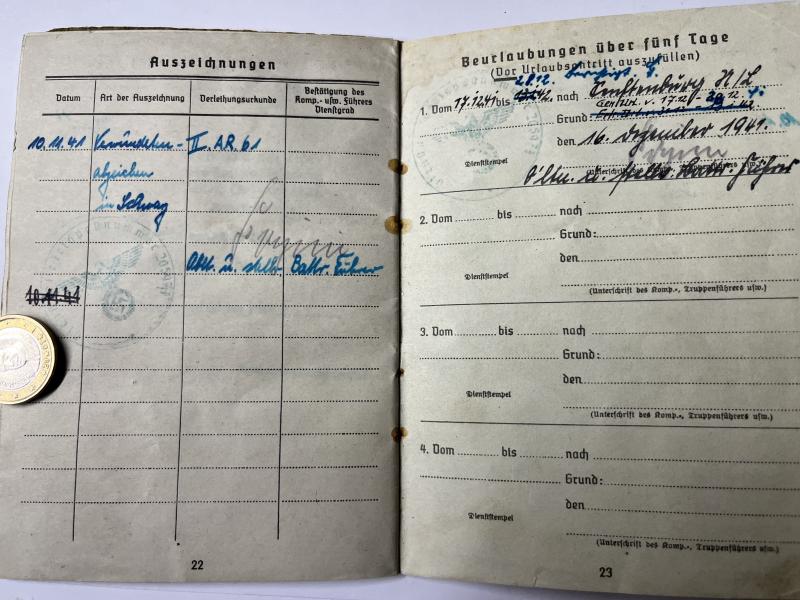 Auszeichnungen
Datum
Art der Auszeichnung
Verleihungsurkunde
Bestätigung des
Komp.- usw. Führers
Dienstgrad
10.11.41 Verwundeten- II. AR. 61
abzeichen
in Schwarz
Oblt. u. stellv. Battr. Führer
10.11.41
22
Beurlaubungen über fünf Tage
(Vor Urlaubsantritt auszufüllen)
28.12.
1. Vom 17.12.41 bis nach
Grund:
den 16. Dezember 1941.
Dienststempel
(Unterschrift des Komp.-, Truppenführers usw.)
Oltn. u. stellv. Battr. Führer
2. Vom bis nach
Grund:
den
Dienststempel
(Unterschrift des Komp.-, Truppenführers usw.)
3. Vom bis nach
Grund:
den
Dienststempel
(Unterschrift des Komp.-, Truppenführers usw.)
4. Vom bis nach
Grund:
den
Dienststempel
(Unterschrift des Komp.-, Truppenführers usw.)
23